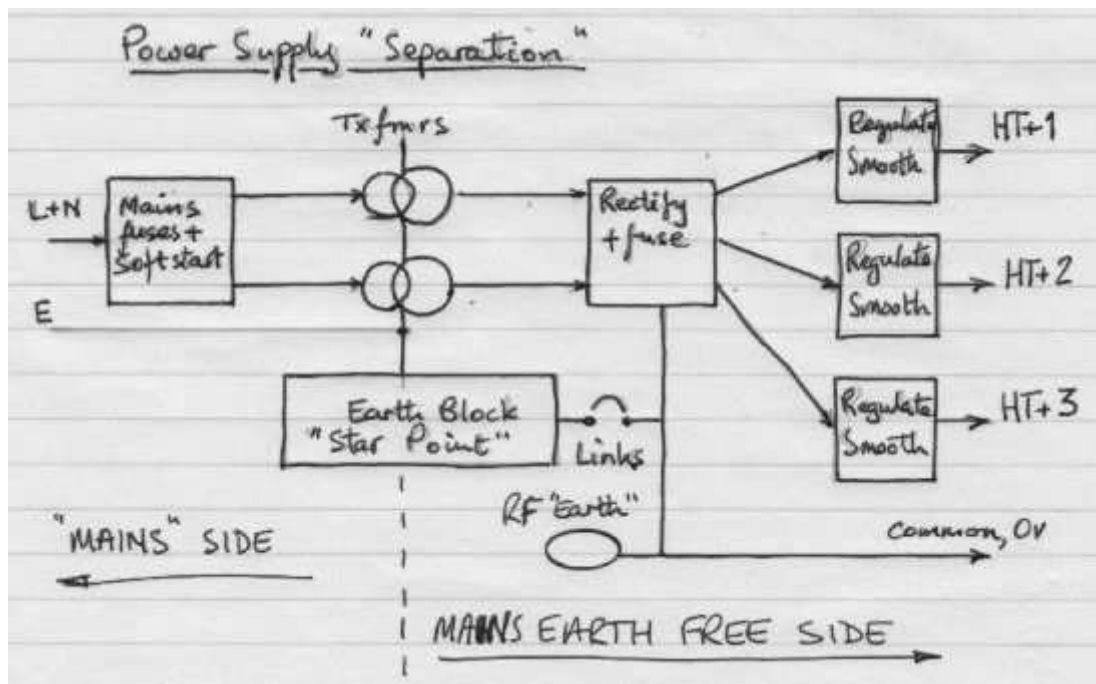 Power Supply "Separation"
Txfmrs
L+N
Mains
fuses+
Softstart
E
Rectify
+ fuse
Regulate
Smooth
HT+1
Regulate
Smooth
HT+2
Regulate
Smooth
HT+3
Earth Block
"Star Point"
Links
RF "Earth"
Common, 0v
"MAINS" SIDE
MAINS EARTH FREE SIDE